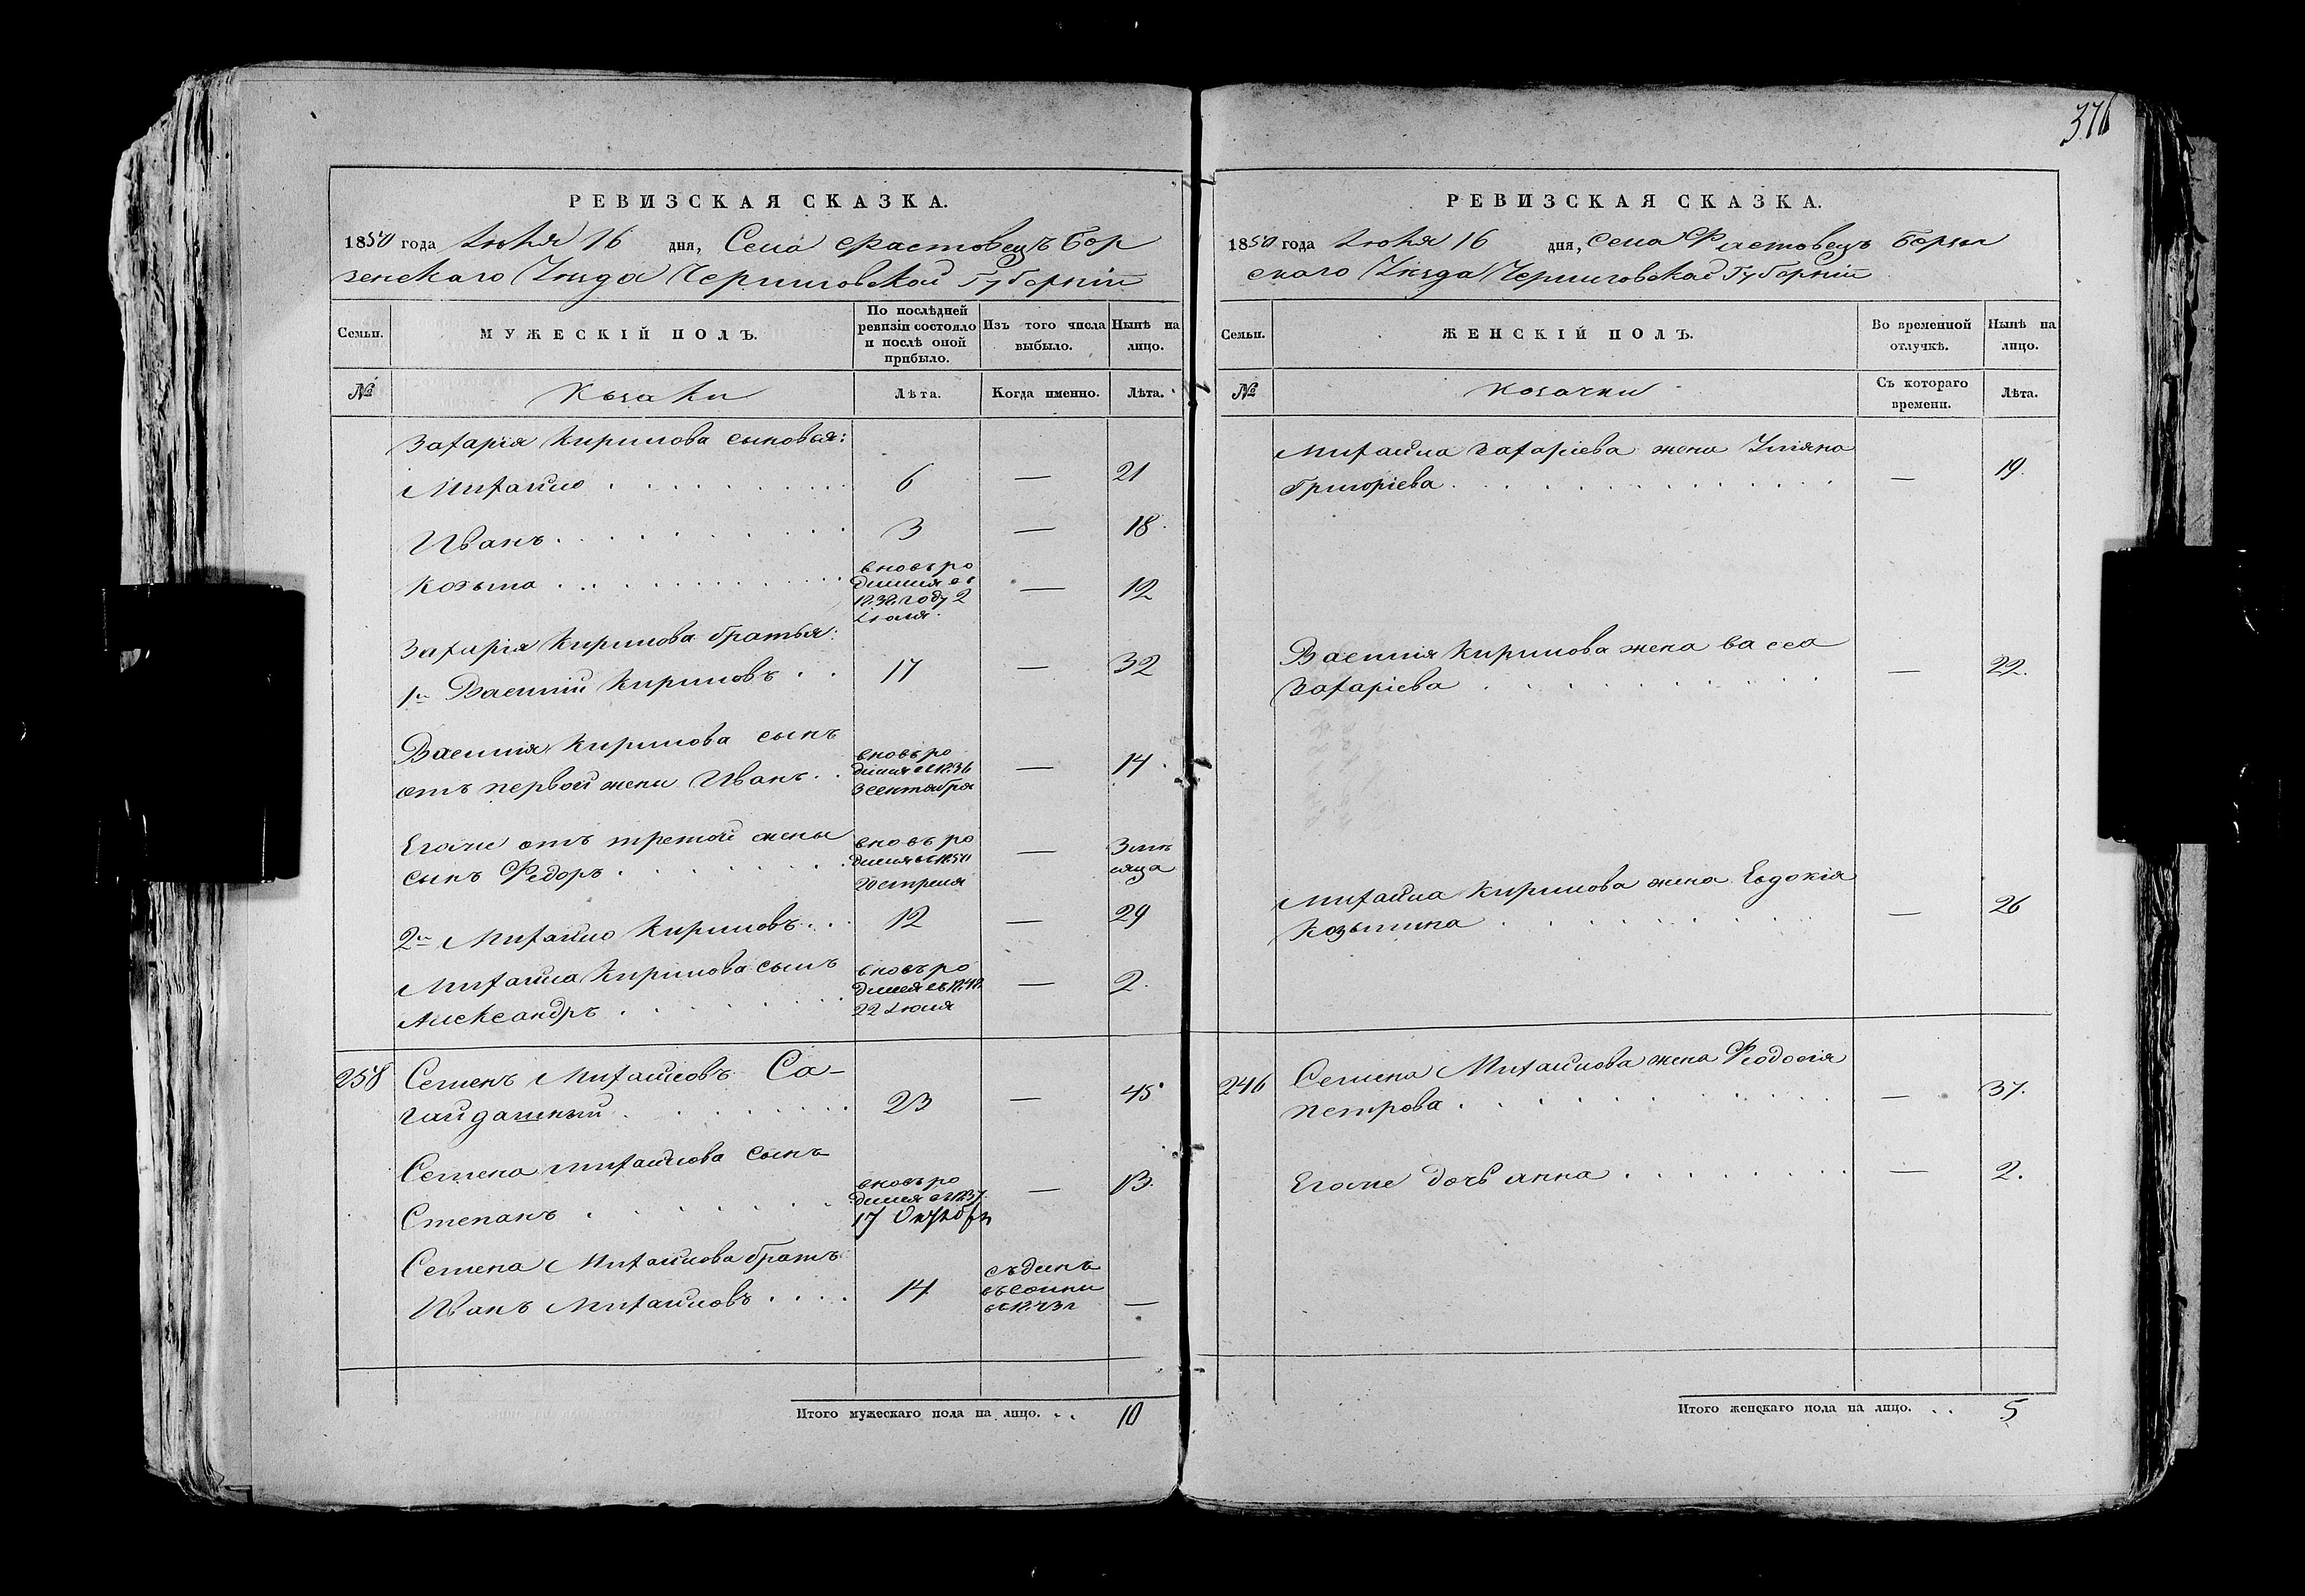 376
РЕВИЗСКАЯ СКАЗКА.
1850 года Іюня 16 дня, Села Фастовецъ Бор
зенскаго Уезда Черниговской Губерніи
Семьи.
МУЖЕСКІЙ ПОЛЪ.
По послѣдней ревизіи состояло и послѣ оной прибыло.
Изъ того числа выбыло.
Нынѣ на лицо.
№
Козаки
Лѣта.
Когда именно.
Лѣта.
Захарія Кирилова сыновья:
Михайло 6 — 21
Иванъ 3 — 18
Козьма
вновь ро
дился
1838 году 2
Іюля
— 12
Захарія Кирилова братья:
1й Василій Кириловъ 17 — 32
Василія Кирилова сынъ
отъ первой жени Иванъ
вновь ро
дился 1836
3 сентября
— 14
Егоже отъ третой жены
сынъ Федоръ
вновь ро
дился въ 1850
20 апреля
— 3 мѣ
сяца
2й Михайло Кириловъ 12 — 29
Михайла Кирилова сынъ
Александръ
вновь ро
дился въ 1848
22 Іюля
— 2.
258 Семенъ Михайловъ Са-
гайдашный 23 — 45
Семена Михайлова сынъ
Степанъ
вновь ро
дился въ 1837
17 Октября
— 13.
Семена Михайлова братъ
Иванъ Михайловъ 14
—
Итого мужескаго пола на лицо. 10
РЕВИЗСКАЯ СКАЗКА.
1850 года Іюня 16 дня, Села Фастовецъ Борзен
скаго Уезда Черниговской Губерніи
Семьи.
ЖЕНСКІЙ ПОЛЪ.
Во временной отлучкѣ.
Нынѣ на лицо.
№
Козачки
Съ котораго времени.
Лѣта.
Михайла Захаріева жена Уліяна
Григоріева — 19.
Василія Кирилова жена Васса
Захаріева — 22.
Михайла Кирилова жена Евдокія
Козьмина — 26
246 Семена Михайлова жена Феодосія
Петрова — 37.
Егоже дочь Анна — 2.
Итого женскаго пола на лицо. 5